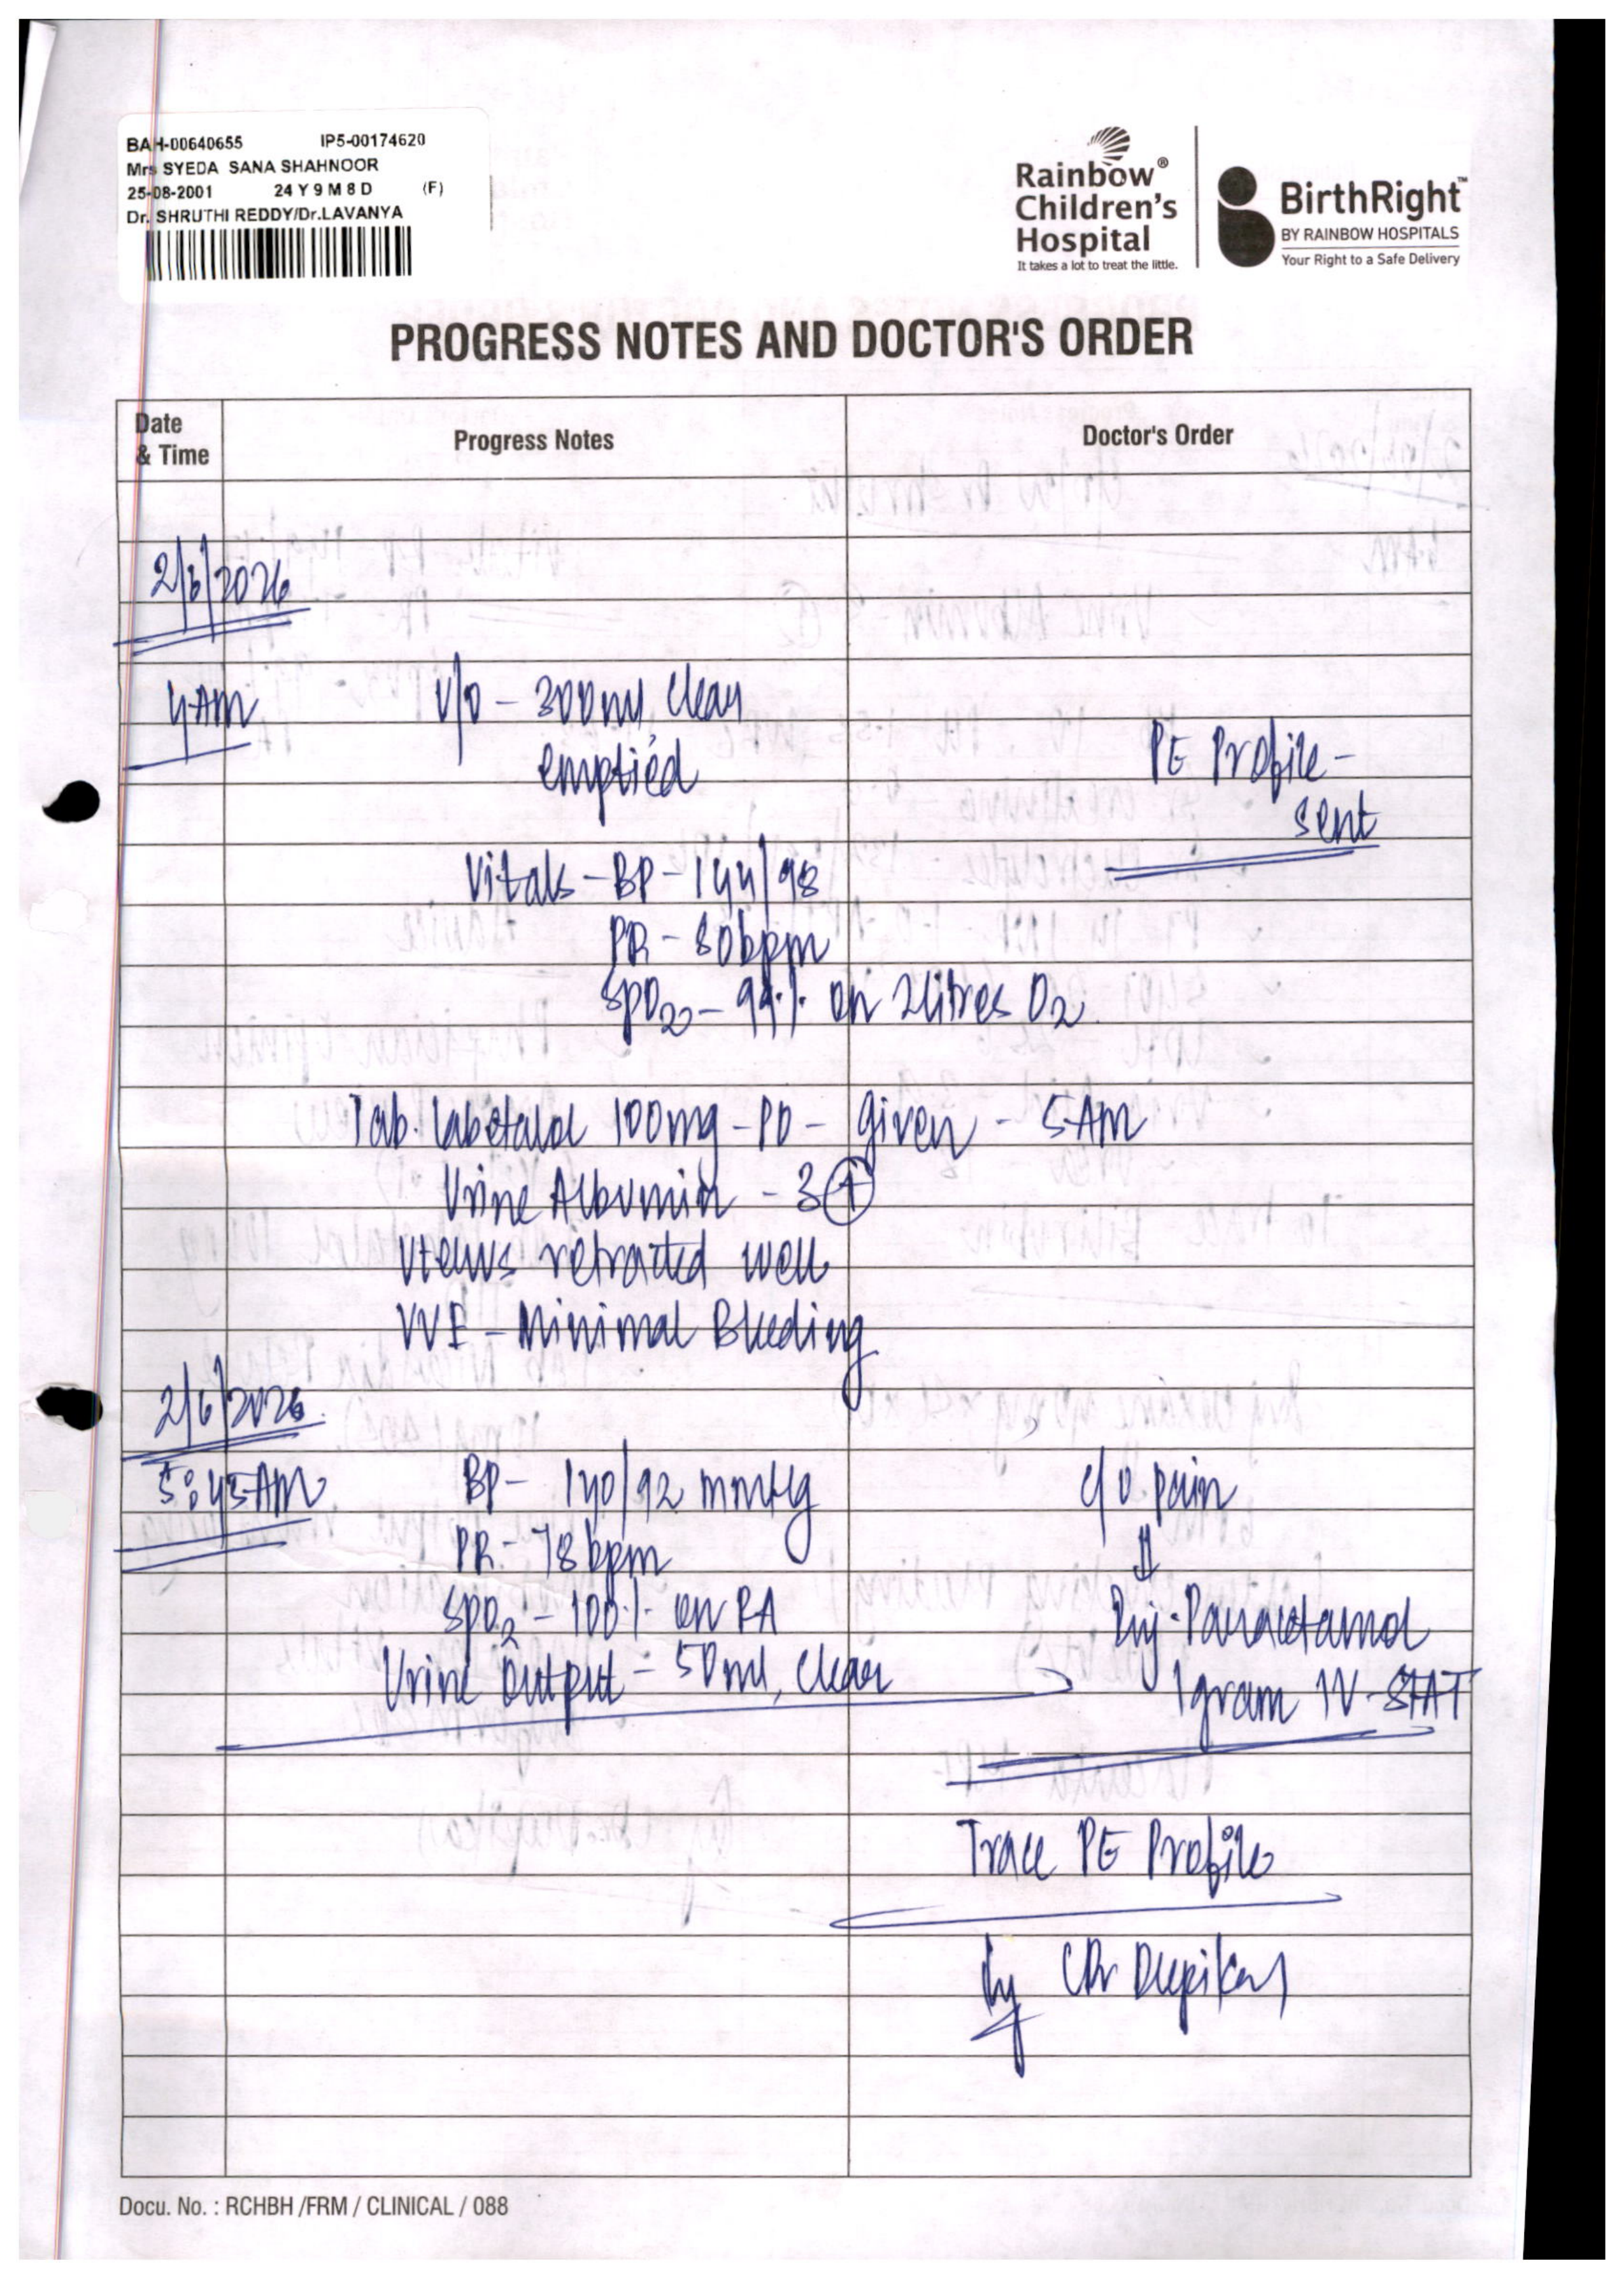 BAH-00640655 IP5-00174620
Mrs SYEDA SANA SHAHNOOR
25-08-2001 24 Y 9 M 8 D (F)
Dr. SHRUTHI REDDY/Dr.LAVANYA
Rainbow®
Children's
Hospital
It takes a lot to treat the little.
BirthRight™
BY RAINBOW HOSPITALS
Your Right to a Safe Delivery
PROGRESS NOTES AND DOCTOR'S ORDER
Date & Time
Progress Notes
Doctor's Order
2/6/2026
4AM
U/O - 300ml, clear
emptied
PE Profile -
sent
Vitals - BP - 144/98
PR - 80bpm
SPO2 - 99% on 2litres O2
Tab. Labetalol 100mg - PO - given - 5AM
Urine Albumin - 3+
Uterus retracted well
VVE - Minimal Bleeding
2/6/2026
5:45AM
BP - 140/92 mmHg
PR - 78bpm
SPO2 - 100% on RA
Urine output - 50ml, clear
c/o pain
⇓
Inj. Paracetamol
1gram IV - STAT
Trace PE Profile
(Dr Deepika)
Docu. No. : RCHBH /FRM / CLINICAL / 088